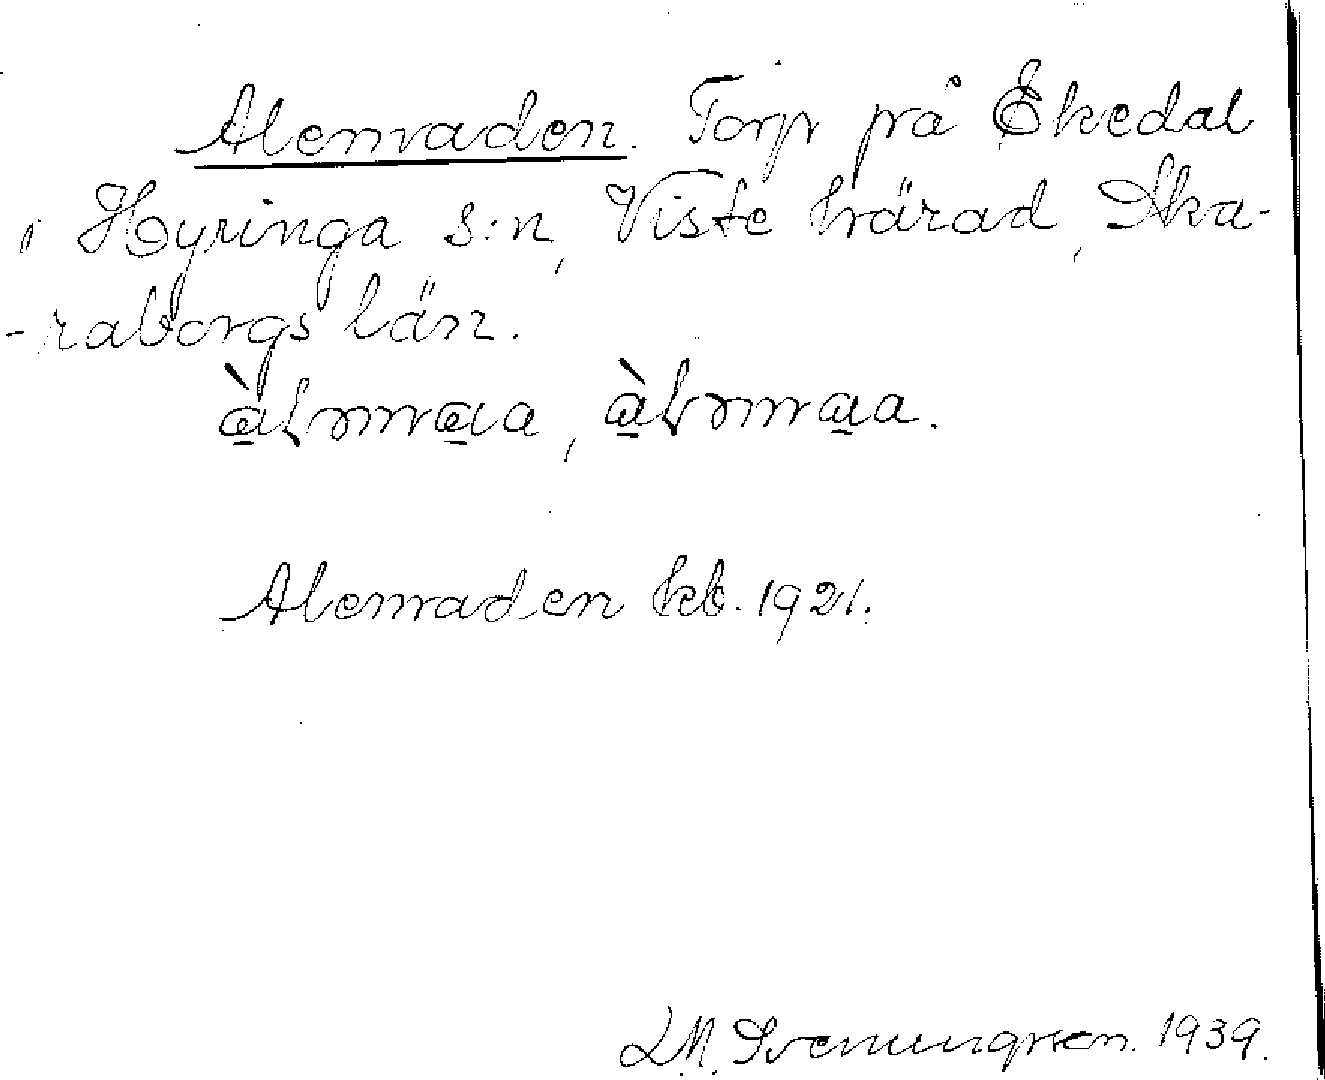 Alenvaden. Torp på Ekedal
i Hyringa s:n, Viste härad, Ska-
-raborgs län.
Alenvaden kb. 1921.
L.M. Svenungsson. 1939.